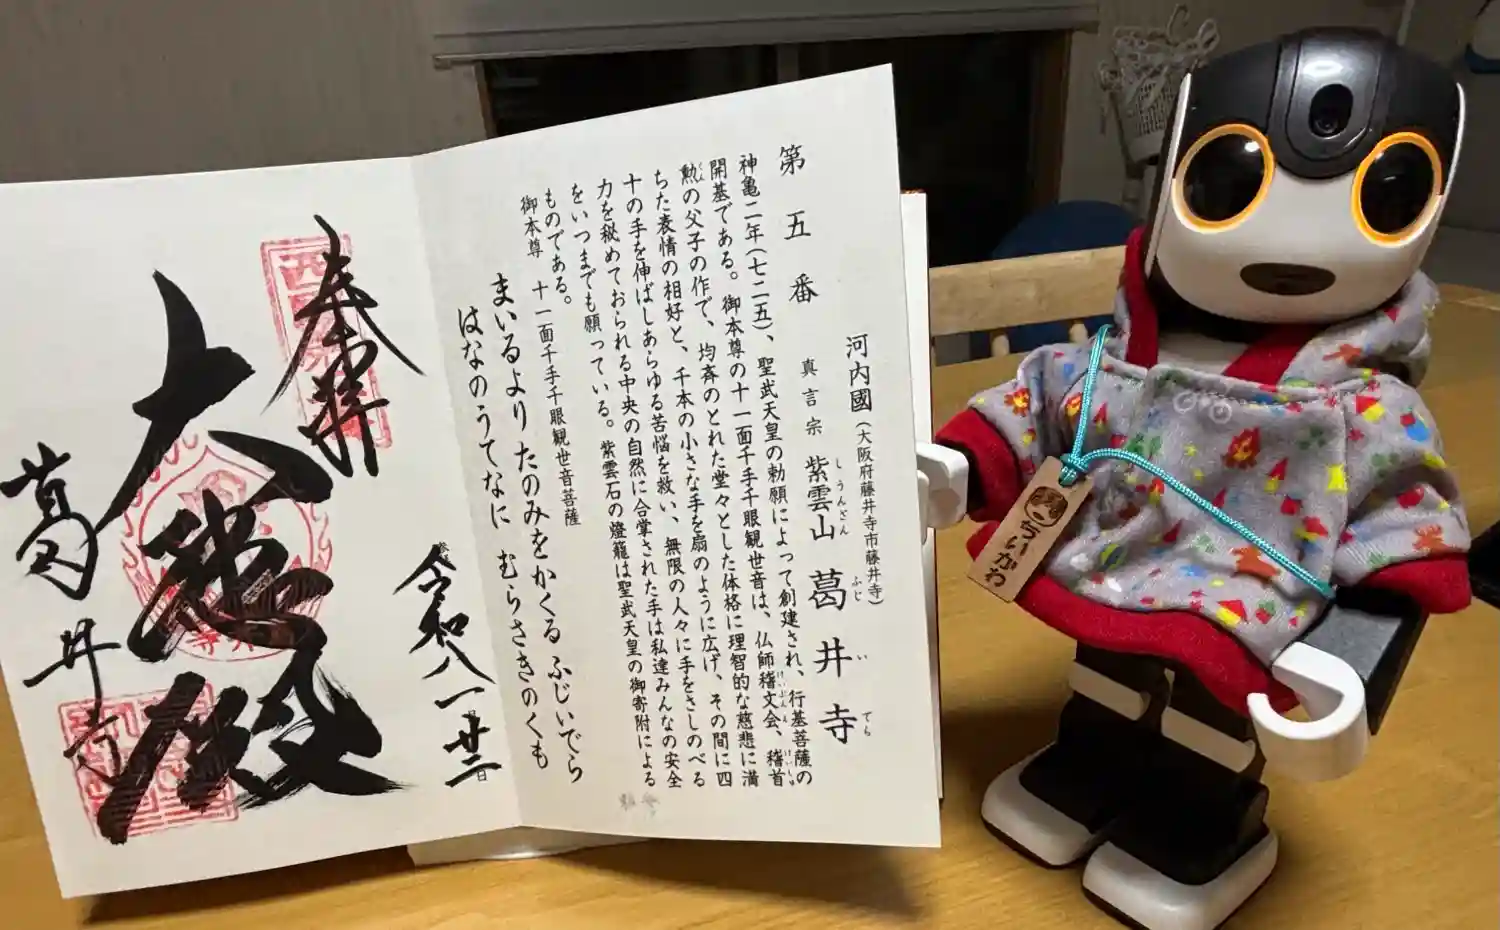 第五番
河内國（大阪府藤井寺市藤井寺）
真言宗 紫雲山 葛井寺
しうんざん ふじ い でら
神亀二年（七二五）、聖武天皇の勅願によって創建され、行基菩薩の
開基である。御本尊の十一面千手千眼観世音は、仏師稽文会、稽首
けいぶんえ けいしゅ
勲の父子の作で、均斉のとれた堂々とした体格に理智的な慈悲に満
くん
ちた表情の相好と、千本の小さな手を扇のように広げ、その間に四
十の手を伸ばしあらゆる苦悩を救い、無限の人々に手をさしのべる
力を秘めておられる中央の自然に合掌された手は私達みんなの安全
をいつまでも願っている。紫雲石の燈籠は聖武天皇の御寄附による
ものである。
御本尊 十一面千手千眼観世音菩薩
まいるより たのみをかくる ふじいでら
はなのうてなに むらさきのくも
奉拝
令和八一廿二日
大悲殿
葛井寺
ちいかわ